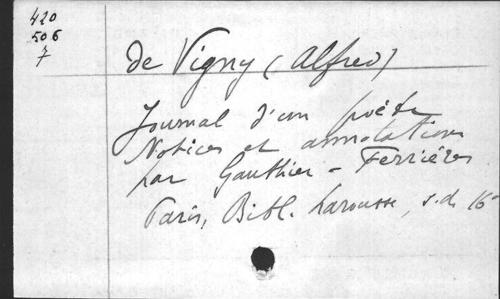 420
506
7
de Vigny (Alfred)
Journal d'un poéte
Notices et annotations
par Gauthier - Ferriéres
Paris, Bibl. Larousse, s.d. 16°